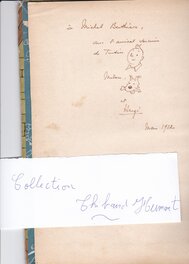 à Michel Berthier,
avec l'amical souvenir
de Tintin
Milou
et
Hergé
Mars 19
Collection
Thibaud